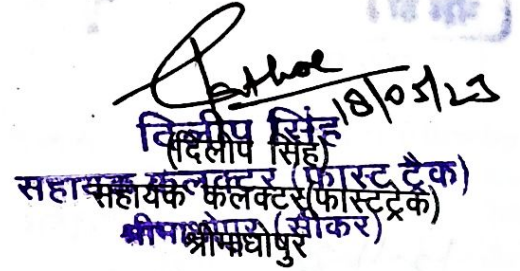 18/05/23
दिलीप सिंह
(दिलीप सिंह)
सहायक कलक्टर (फास्ट ट्रैक)
सहायक कलक्टर(फास्टट्रेक)
श्रीमाधोपुर (सीकर)
श्रीमाधोपुर